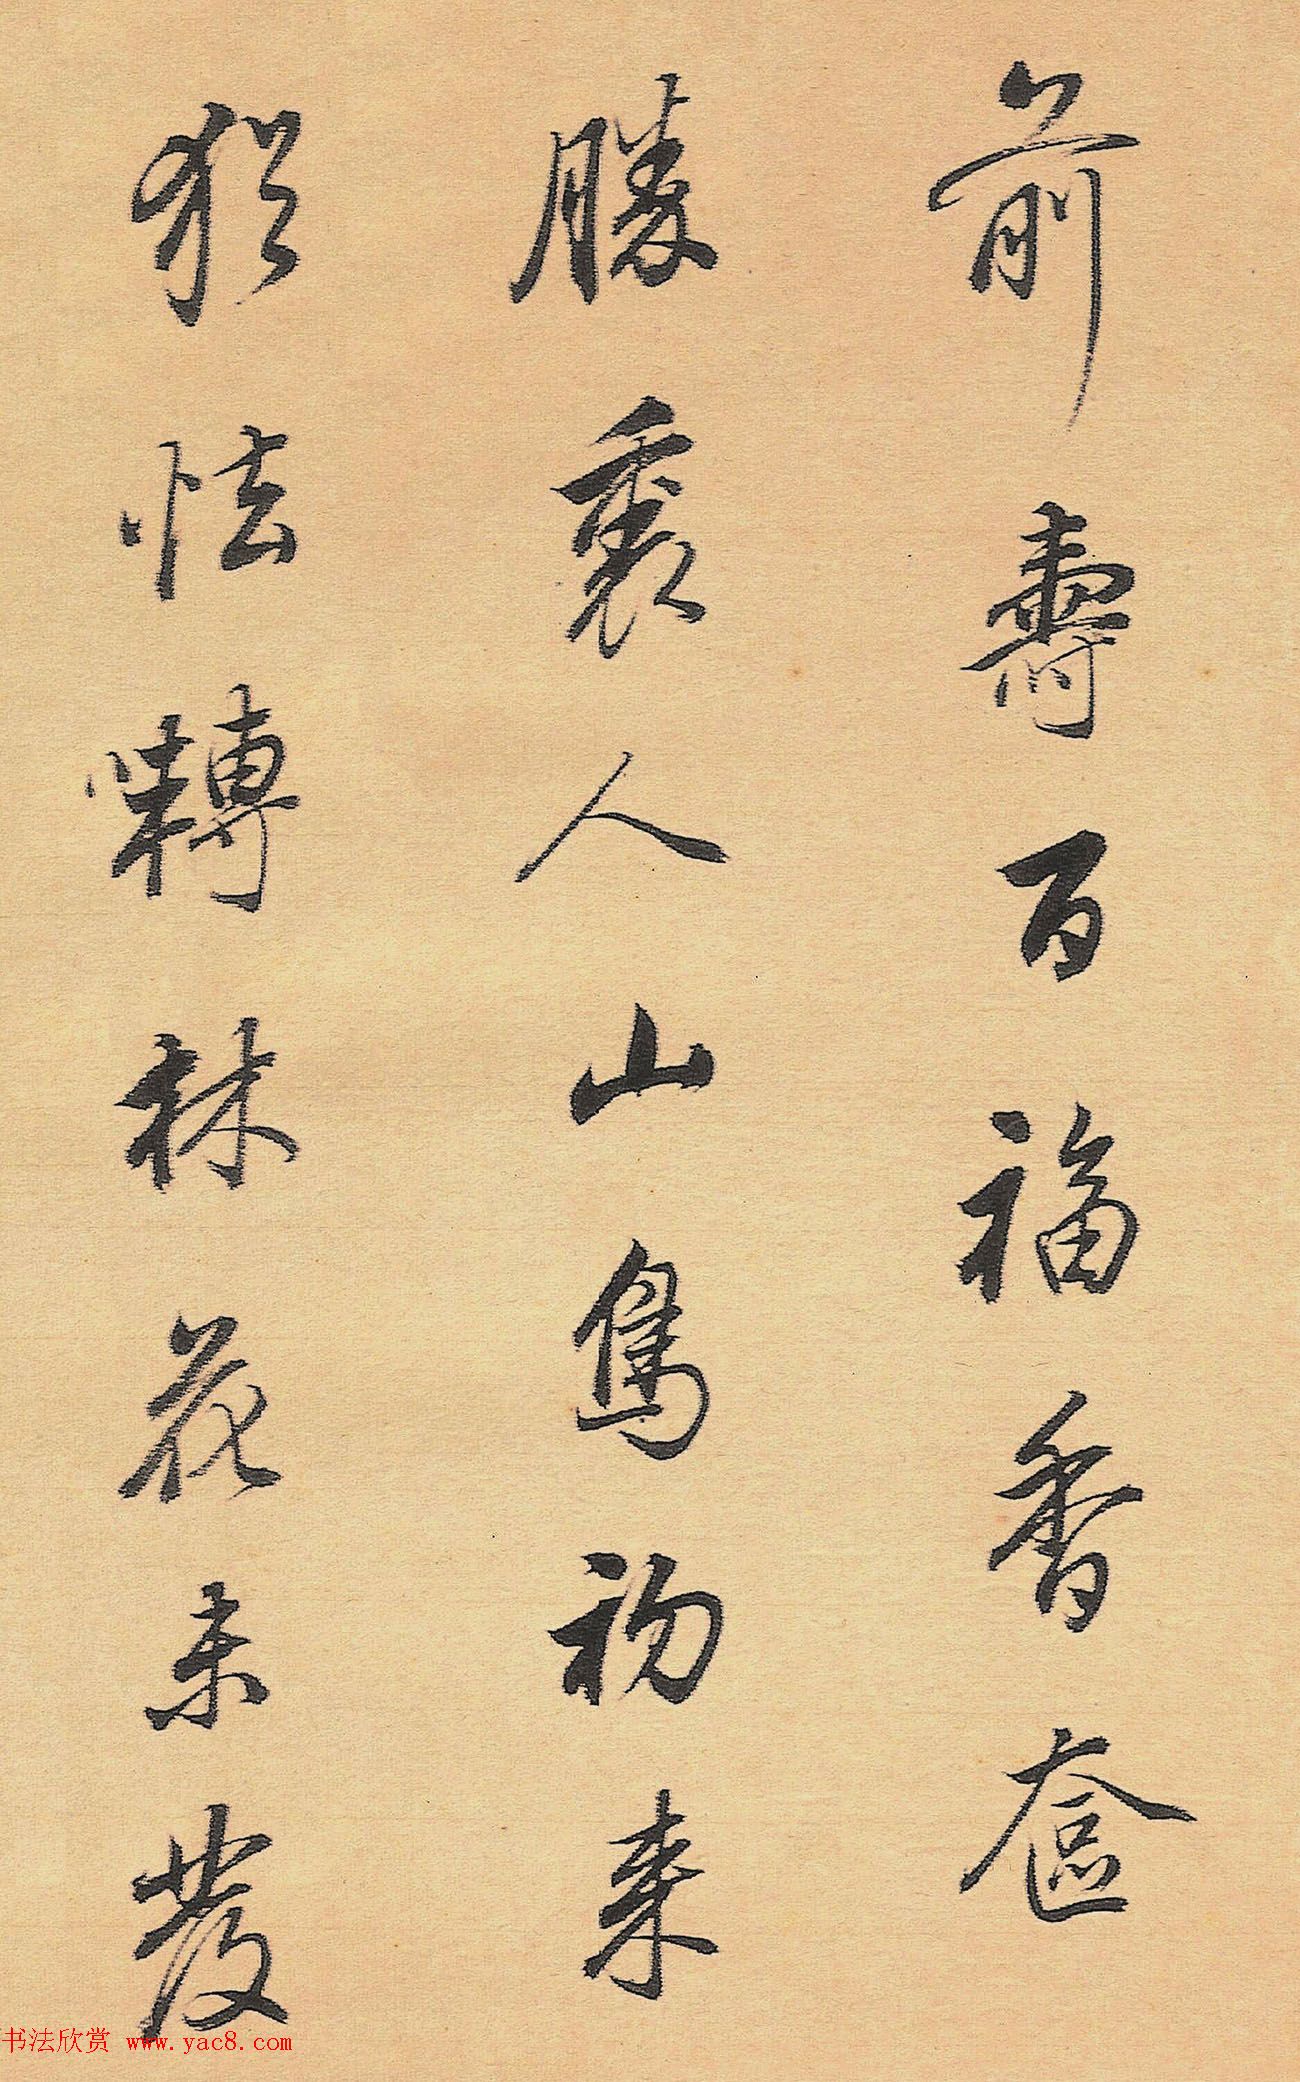 前壽百福香奩
勝裏人山鳥初来
猶怯囀林花未發
书法欣赏 www.yac8.com